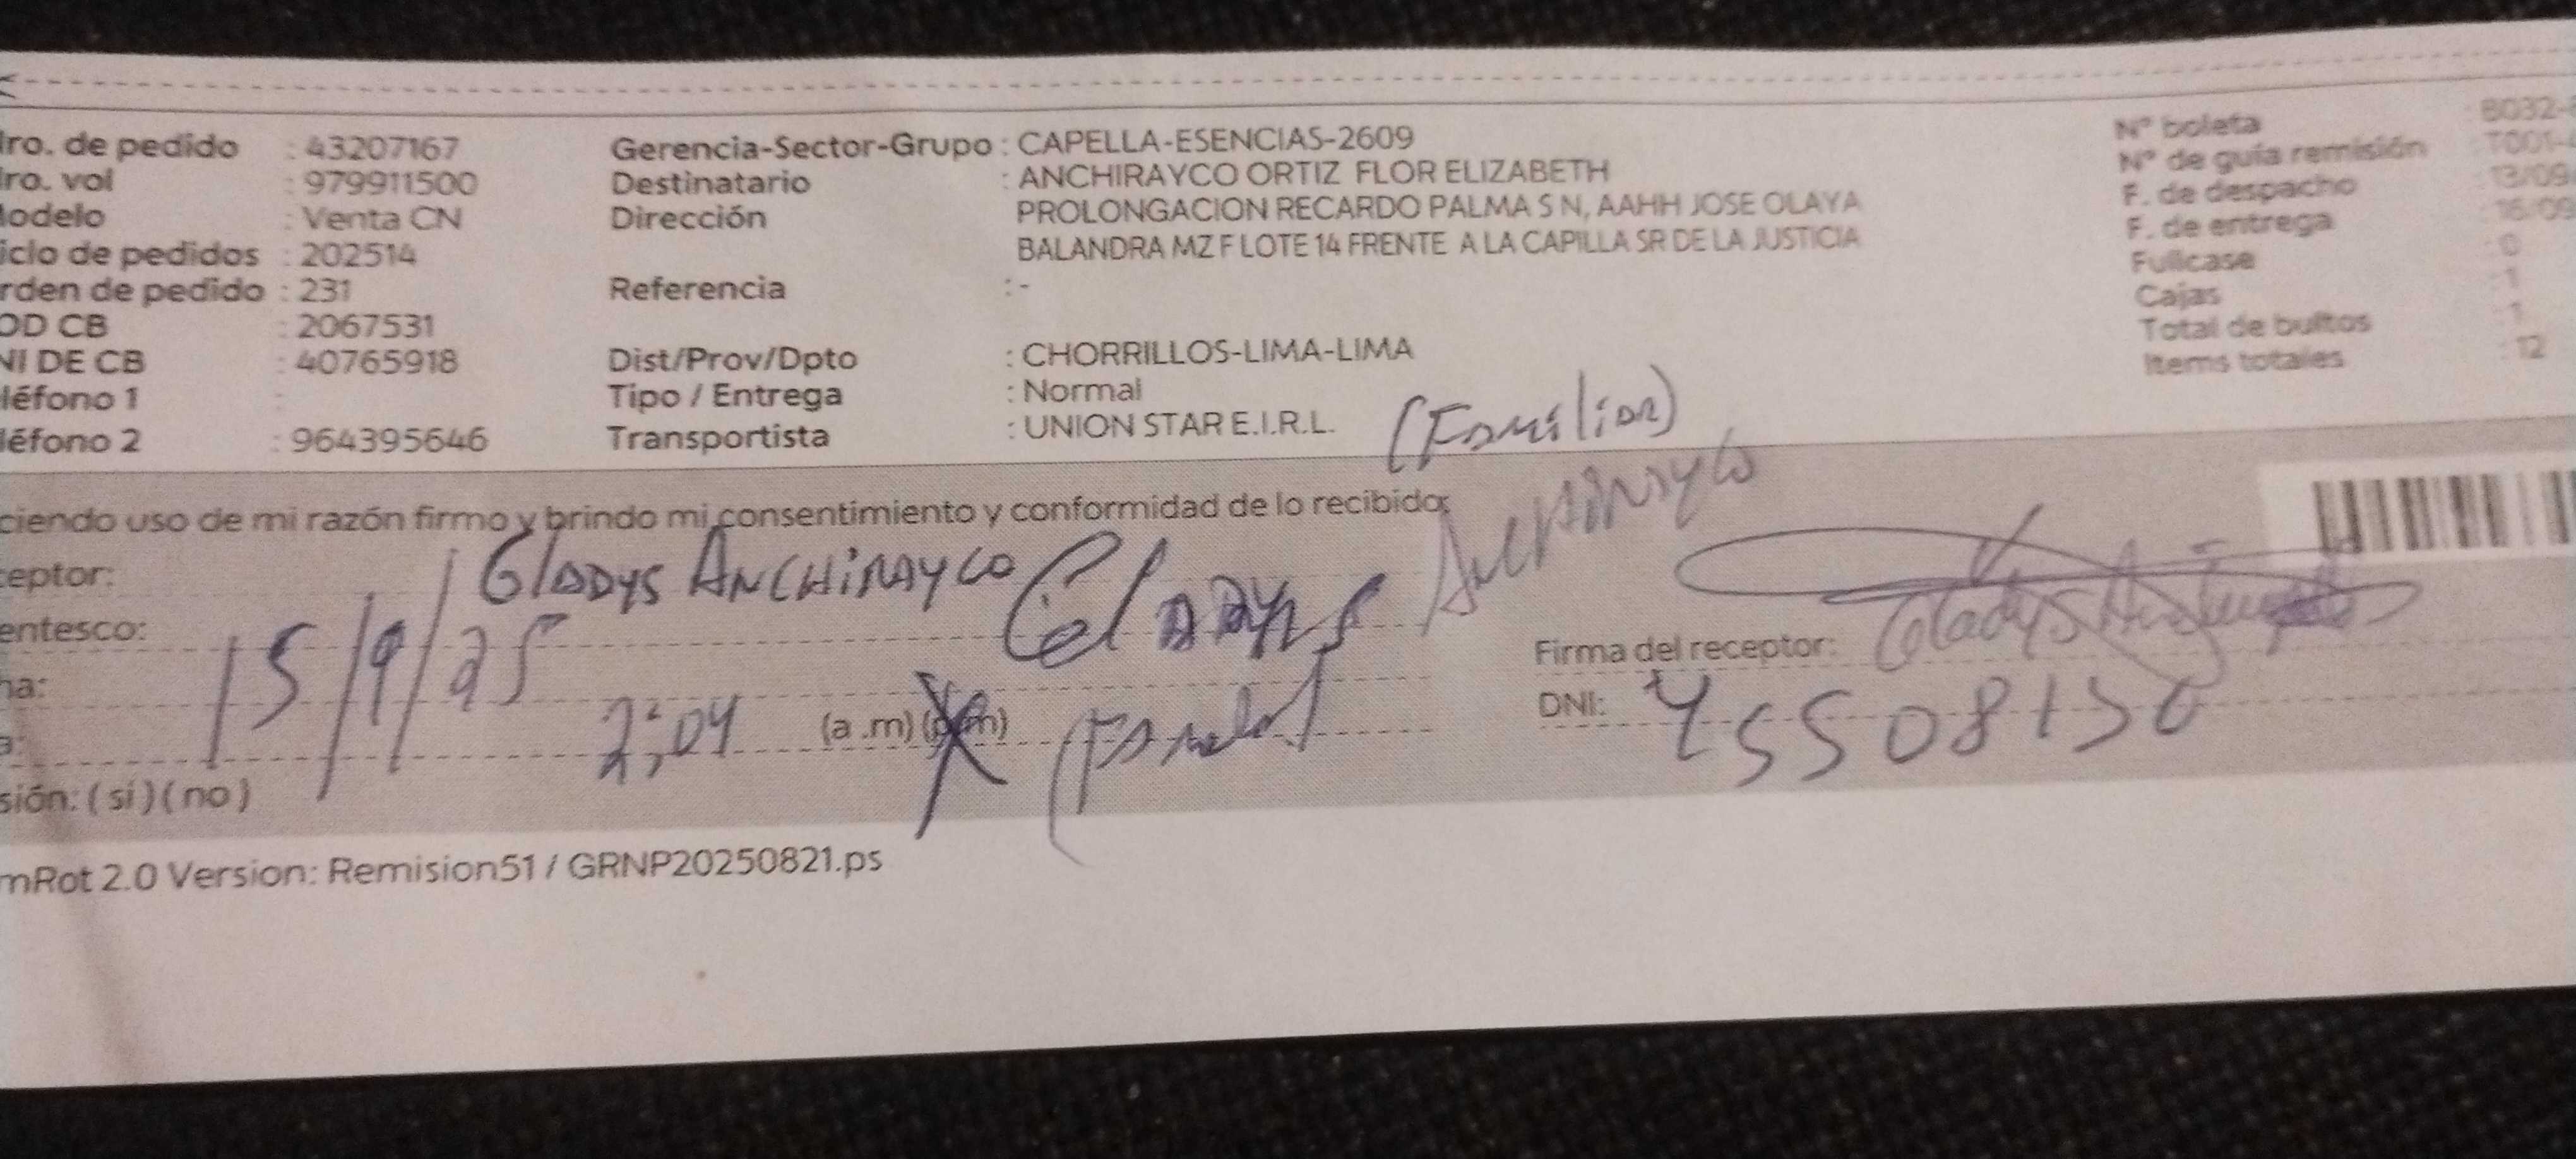 ro. de pedido : 43207167
ro. vol : 979911500
odelo : Venta CN
iclo de pedidos : 202514
rden de pedido : 231
OD CB : 2067531
NI DE CB : 40765918
léfono 1 :
léfono 2 : 964395646
Gerencia-Sector-Grupo : CAPELLA-ESENCIAS-2609
Destinatario : ANCHIRAYCO ORTIZ FLOR ELIZABETH
Dirección PROLONGACION RECARDO PALMA S N, AAHH JOSE OLAYA
BALANDRA MZ F LOTE 14 FRENTE A LA CAPILLA SR DE LA JUSTICIA
Referencia : -
Dist/Prov/Dpto : CHORRILLOS-LIMA-LIMA
Tipo / Entrega : Normal
Transportista : UNION STAR E.I.R.L.
(Familiar)
Nº boleta : B032-
Nº de guía remisión : T001-
F. de despacho : 13/09
F. de entrega : 16/09
Fullcase : 0
Cajas : 1
Total de bultos : 1
Items totales : 12
ciendo uso de mi razón firmo y brindo mi consentimiento y conformidad de lo recibido:
ceptor: GLADYS ANCHIRAYCO Gladys Anchirayco
entesco:
ha: 15/9/25
a: 2:04 (a .m) (p.m)
sión: ( si ) ( no )
Firma del receptor: Gladys
DNI:
mRot 2.0 Version: Remision51 / GRNP20250821.ps